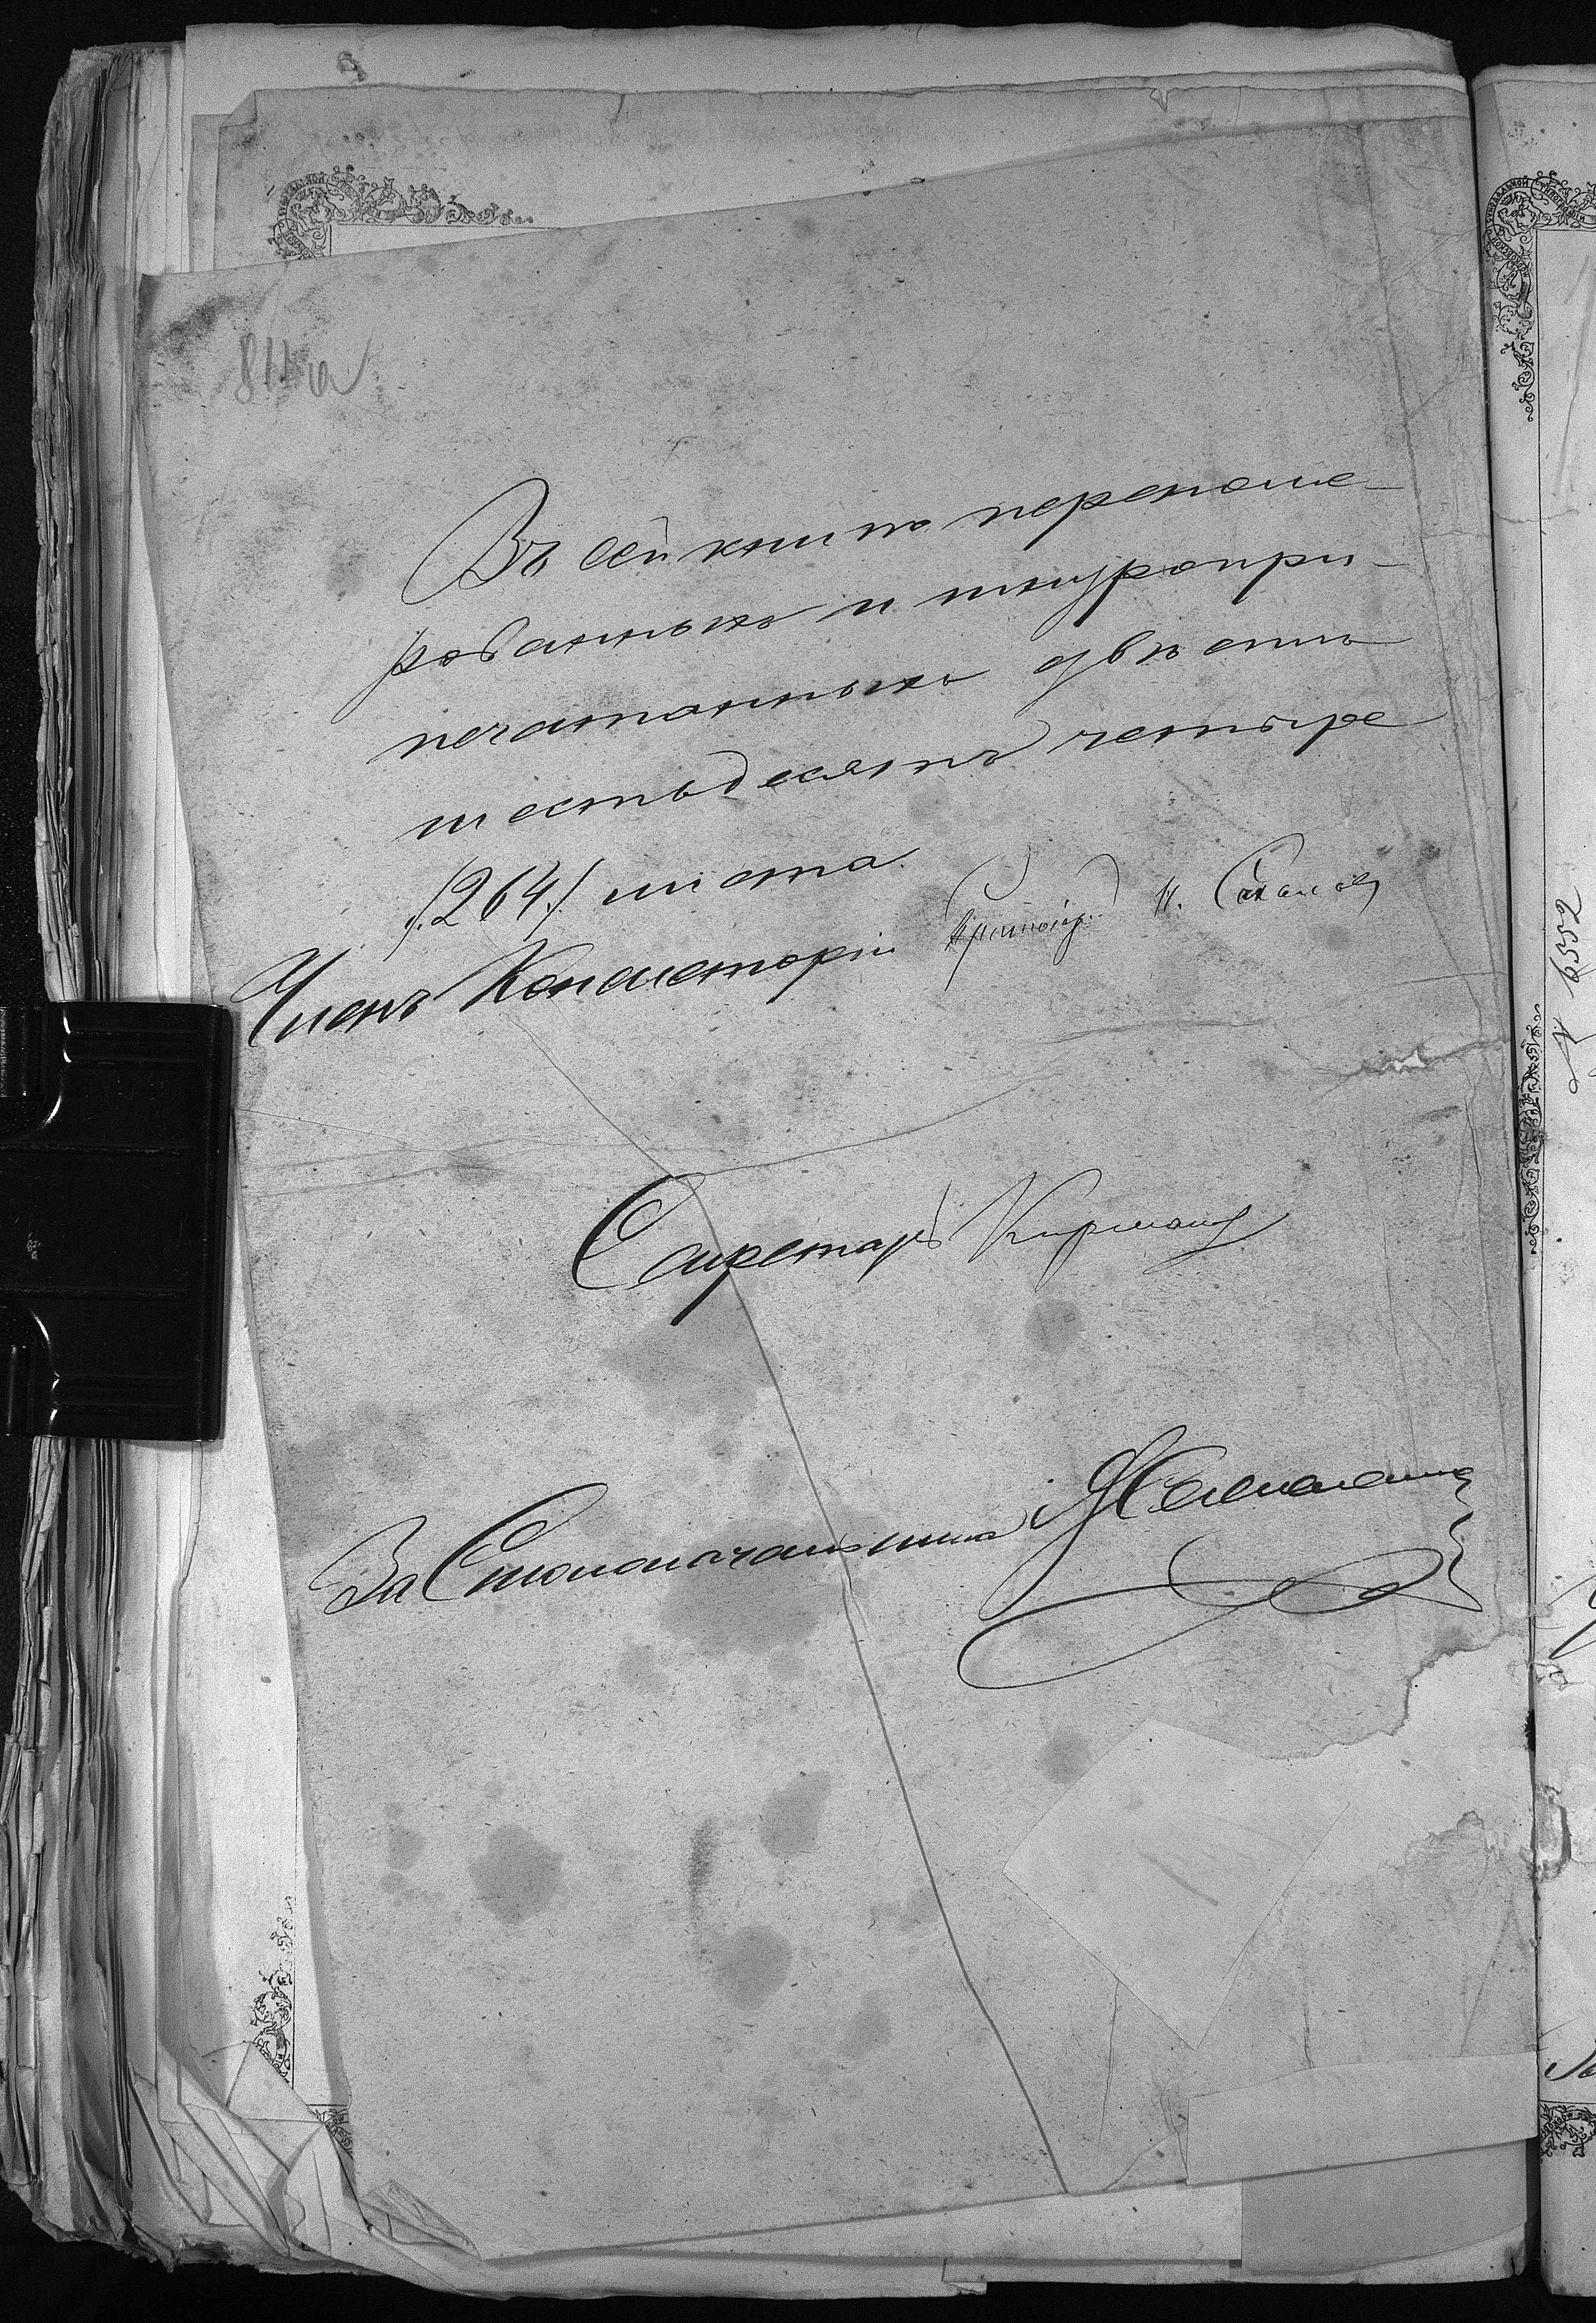 811 а
Въ сей книгѣ перенуме-
рованныхъ и шнуропри-
печатанныхъ двѣсти
шестьдесятъ четыре
/.264./ листа.
Членъ Консисторіи
Секретарь
За Столоначальника
№ 6552